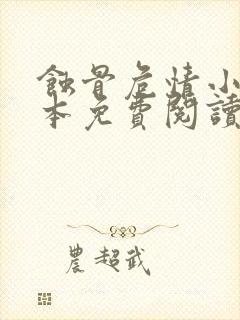 蝕骨危情小
本免費閱讀
農超武